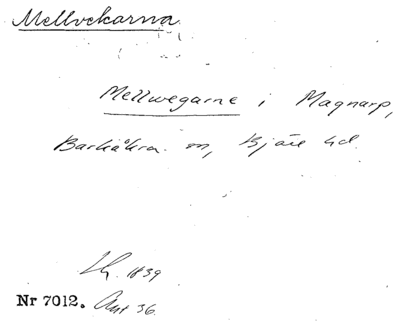 Mellvekarna
Mellwegarne i Magnarp,
Barkåkra sn, Bjäre hd.
Lh. 1839
Nr 7012. Ant 36.